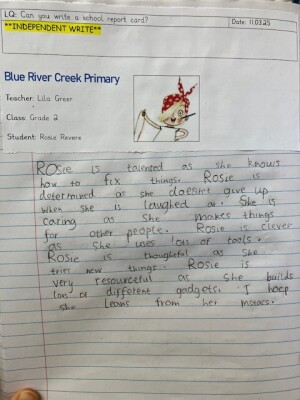 LQ: Can you write a school report card?
Date: 11.03.25
**INDEPENDENT WRITE**
Blue River Creek Primary
Teacher: Lila Greer
Class: Grade 2
Student: Rosie Revere
Rosie is talented as she knows
how to fix things. Rosie is
determined as she doesn't give up
when she is laughed at. She is
caring as she makes things
for other people. Rosie is clever
as she uses lots of tools.
Rosie is thoughtful as she
tries new things. Rosie is
very resourceful as she builds
lots of different gadgets. I hoep
she leans from her